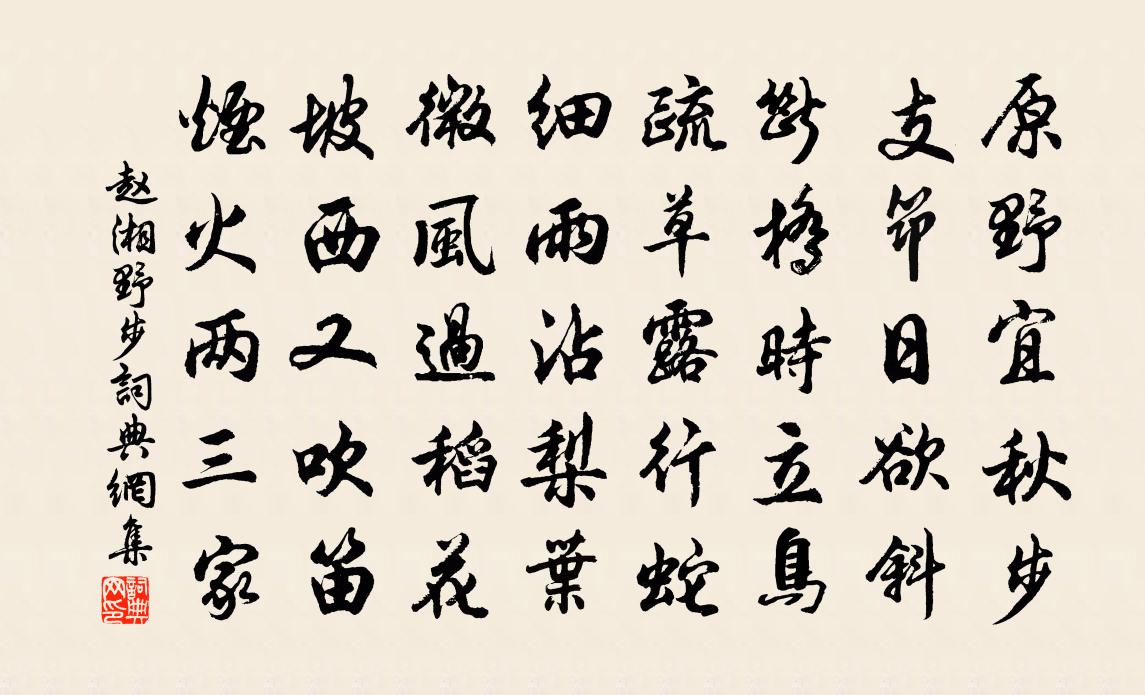 原野宜秋步
支筇日欲斜
斷橋時立鳥
疏草露行蛇
細雨沾梨葉
微風過稻花
坡西又吹笛
煙火两三家
赵湘野步詞典網集
詞典网印